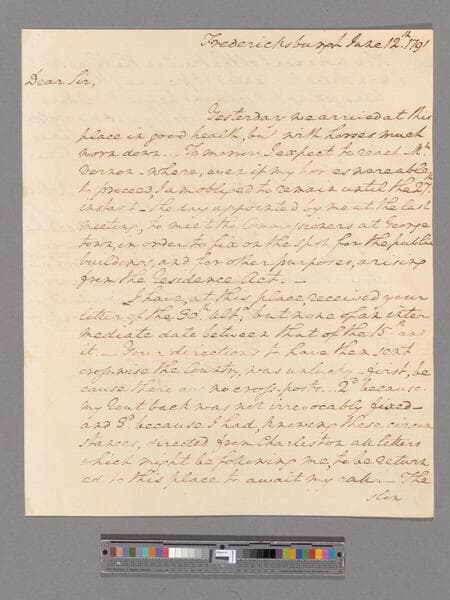 Fredericksburgh June 12th. 1791
Dear Sir,
Yesterday we arrived at this
place in good health, but with horses much
worn down.. To morrow I expect to reach Mt.
Vernon - where, even if my horses were able
to proceed I am obliged to remain until the 27th
instant - the day appointed by me at the last
meeting, to meet the Commissioners at George
town, in order to fix on the spot, for the public
buildings, and for other purposes, arising
from the Residence Act. —
I have, at this place, received your
letter of the 30th. Ulto; but none of an inter
mediate date between that of the 15th and
it. — Your directions to have them sent
cross-wise the Country, was unlucky - first, be
cause there are no cross-posts. - 2d because
my rout back was not irrevocably fixed -
and 3d. because I had, knowing these circum
stances, directed from Charleston all letters
which might be following me, to be return
ed to this place to await my call. - The